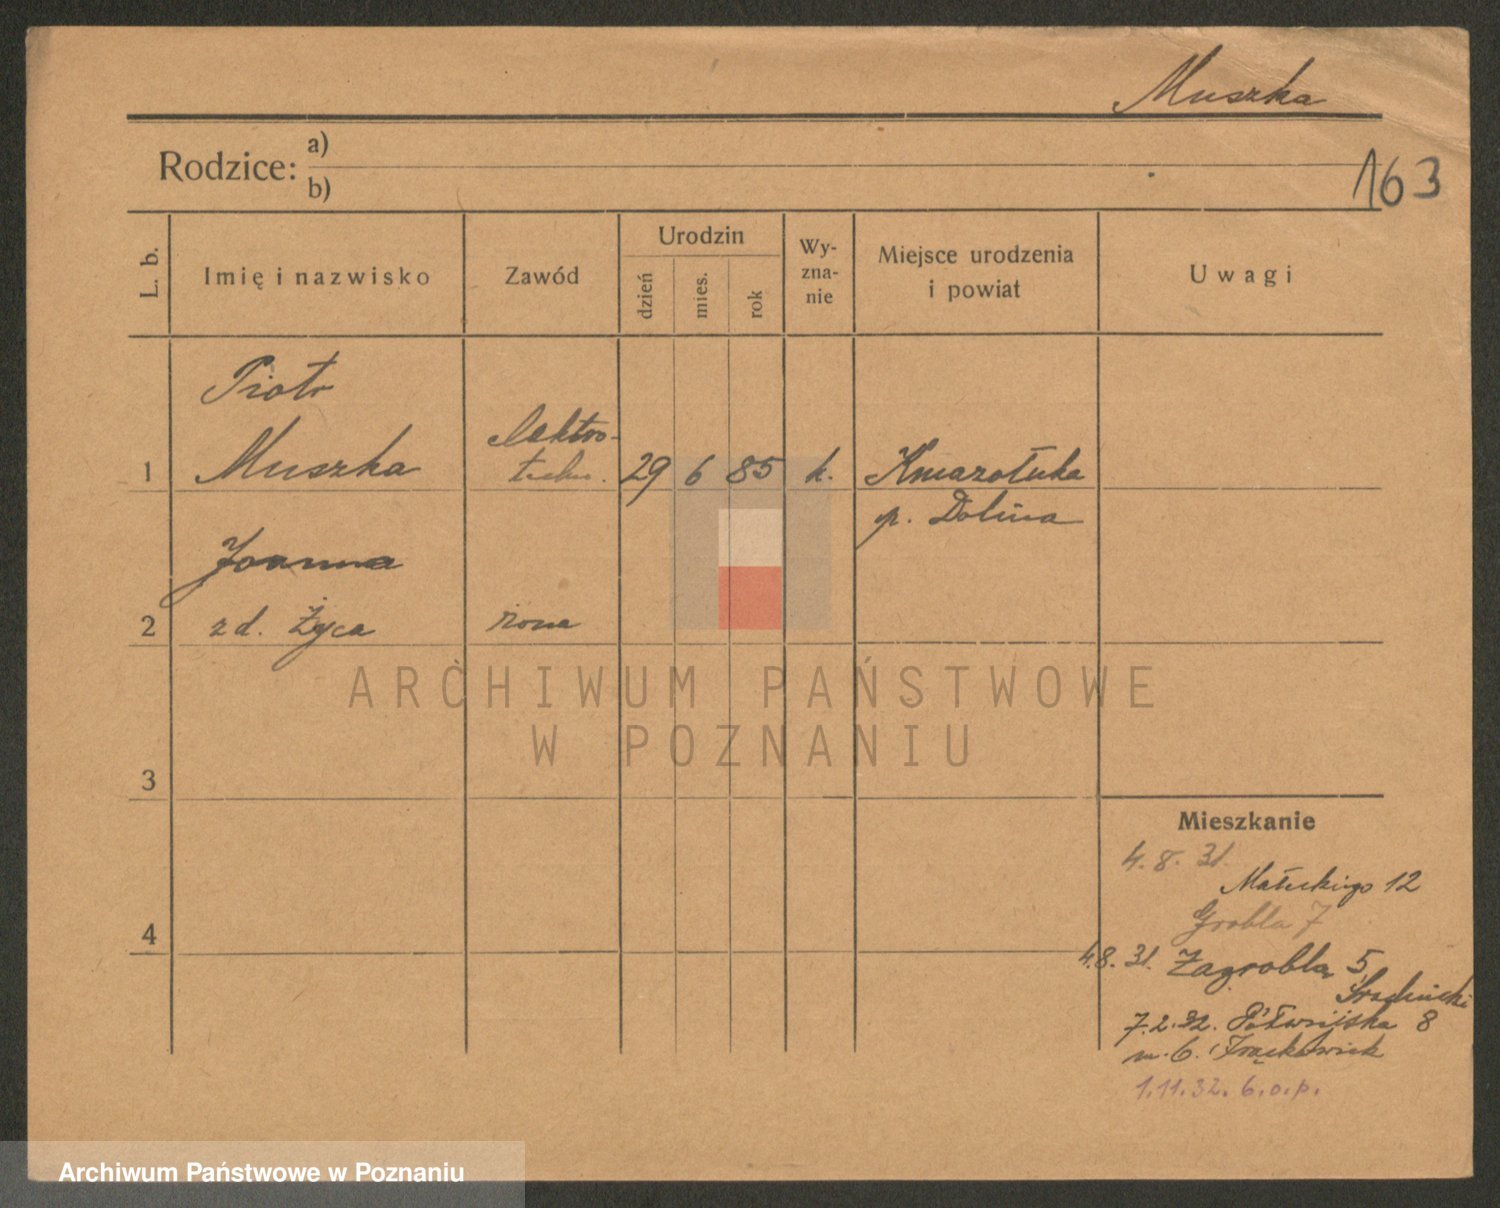 Muszka
163
Rodzice: a)
b)
L. b.
Imię i nazwisko
Zawód
Urodzin
dzień
mies.
rok
Wy-
zna-
nie
Miejsce urodzenia
i powiat
Uwagi
Piotr
Muszka
elektro-
techn.
1
29 6 85 k.
Kniazołuka
p. Dolina
Joanna
2
z d. Życa
żona
3
4
Mieszkanie
4.8.31.
Małeckiego 12
Grobla 7
4.8.31. Zagrobla 5,
7.2.32. Półwiejska 8
m. 6. Frąckowiak
1.11.32. 6.o.p.
ARCHIWUM PAŃSTWOWE
W POZNANIU
Archiwum Państwowe w Poznaniu